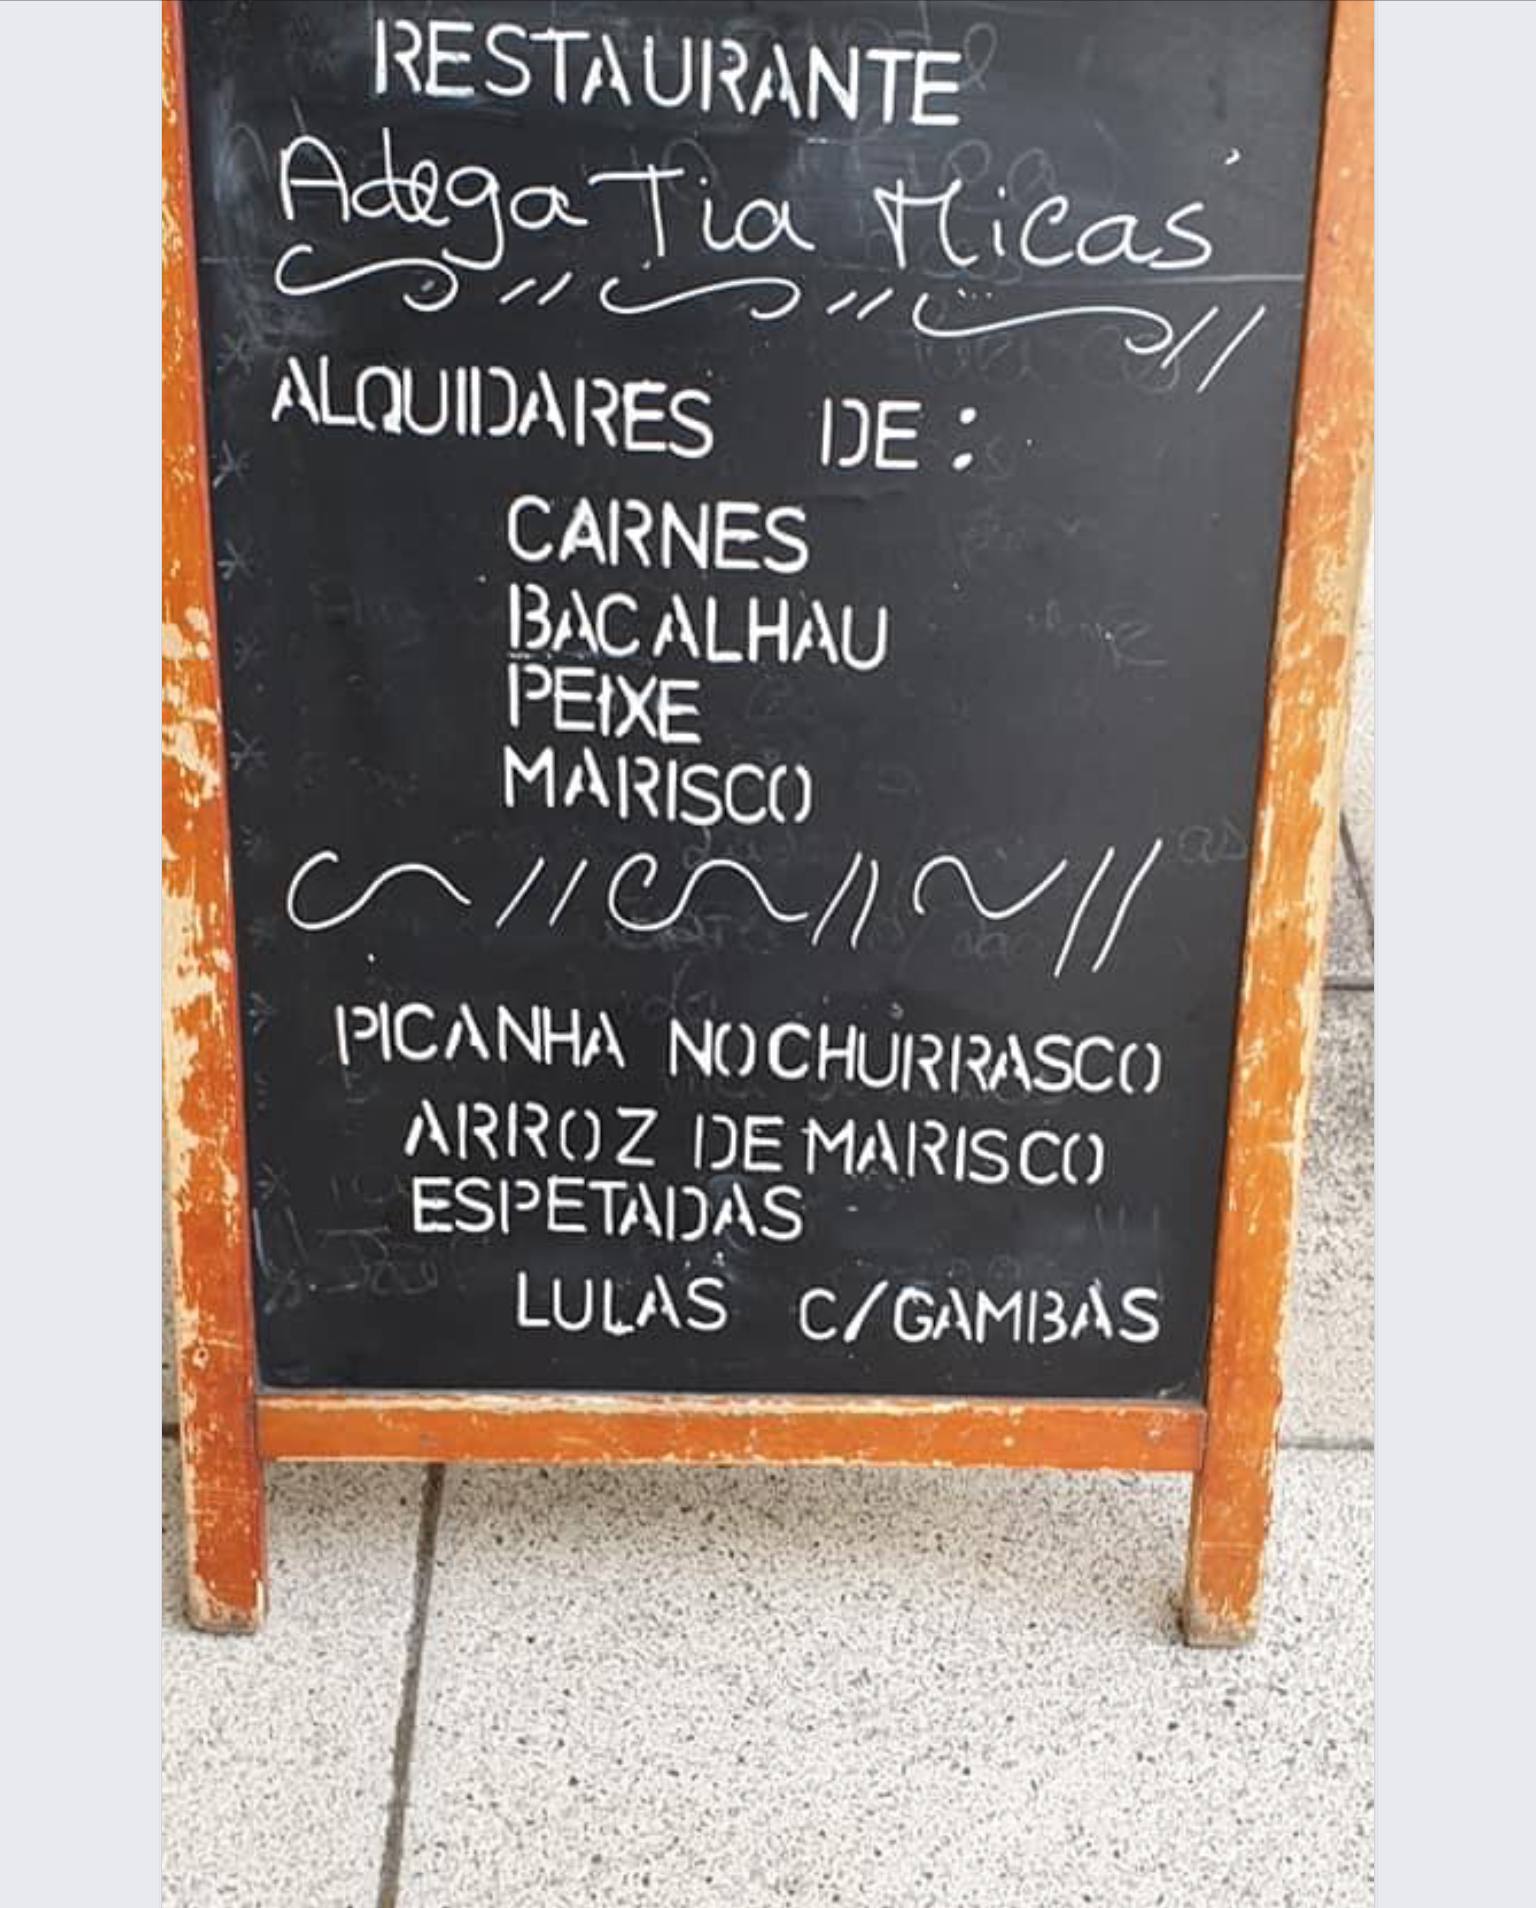 RESTAURANTE
Adega Tia Micas
ALQUIDARES DE:
CARNES
BACALHAU
PEIXE
MARISCO
PICANHA NO CHURRASCO
ARROZ DE MARISCO
ESPETADAS
LULAS C/GAMBAS